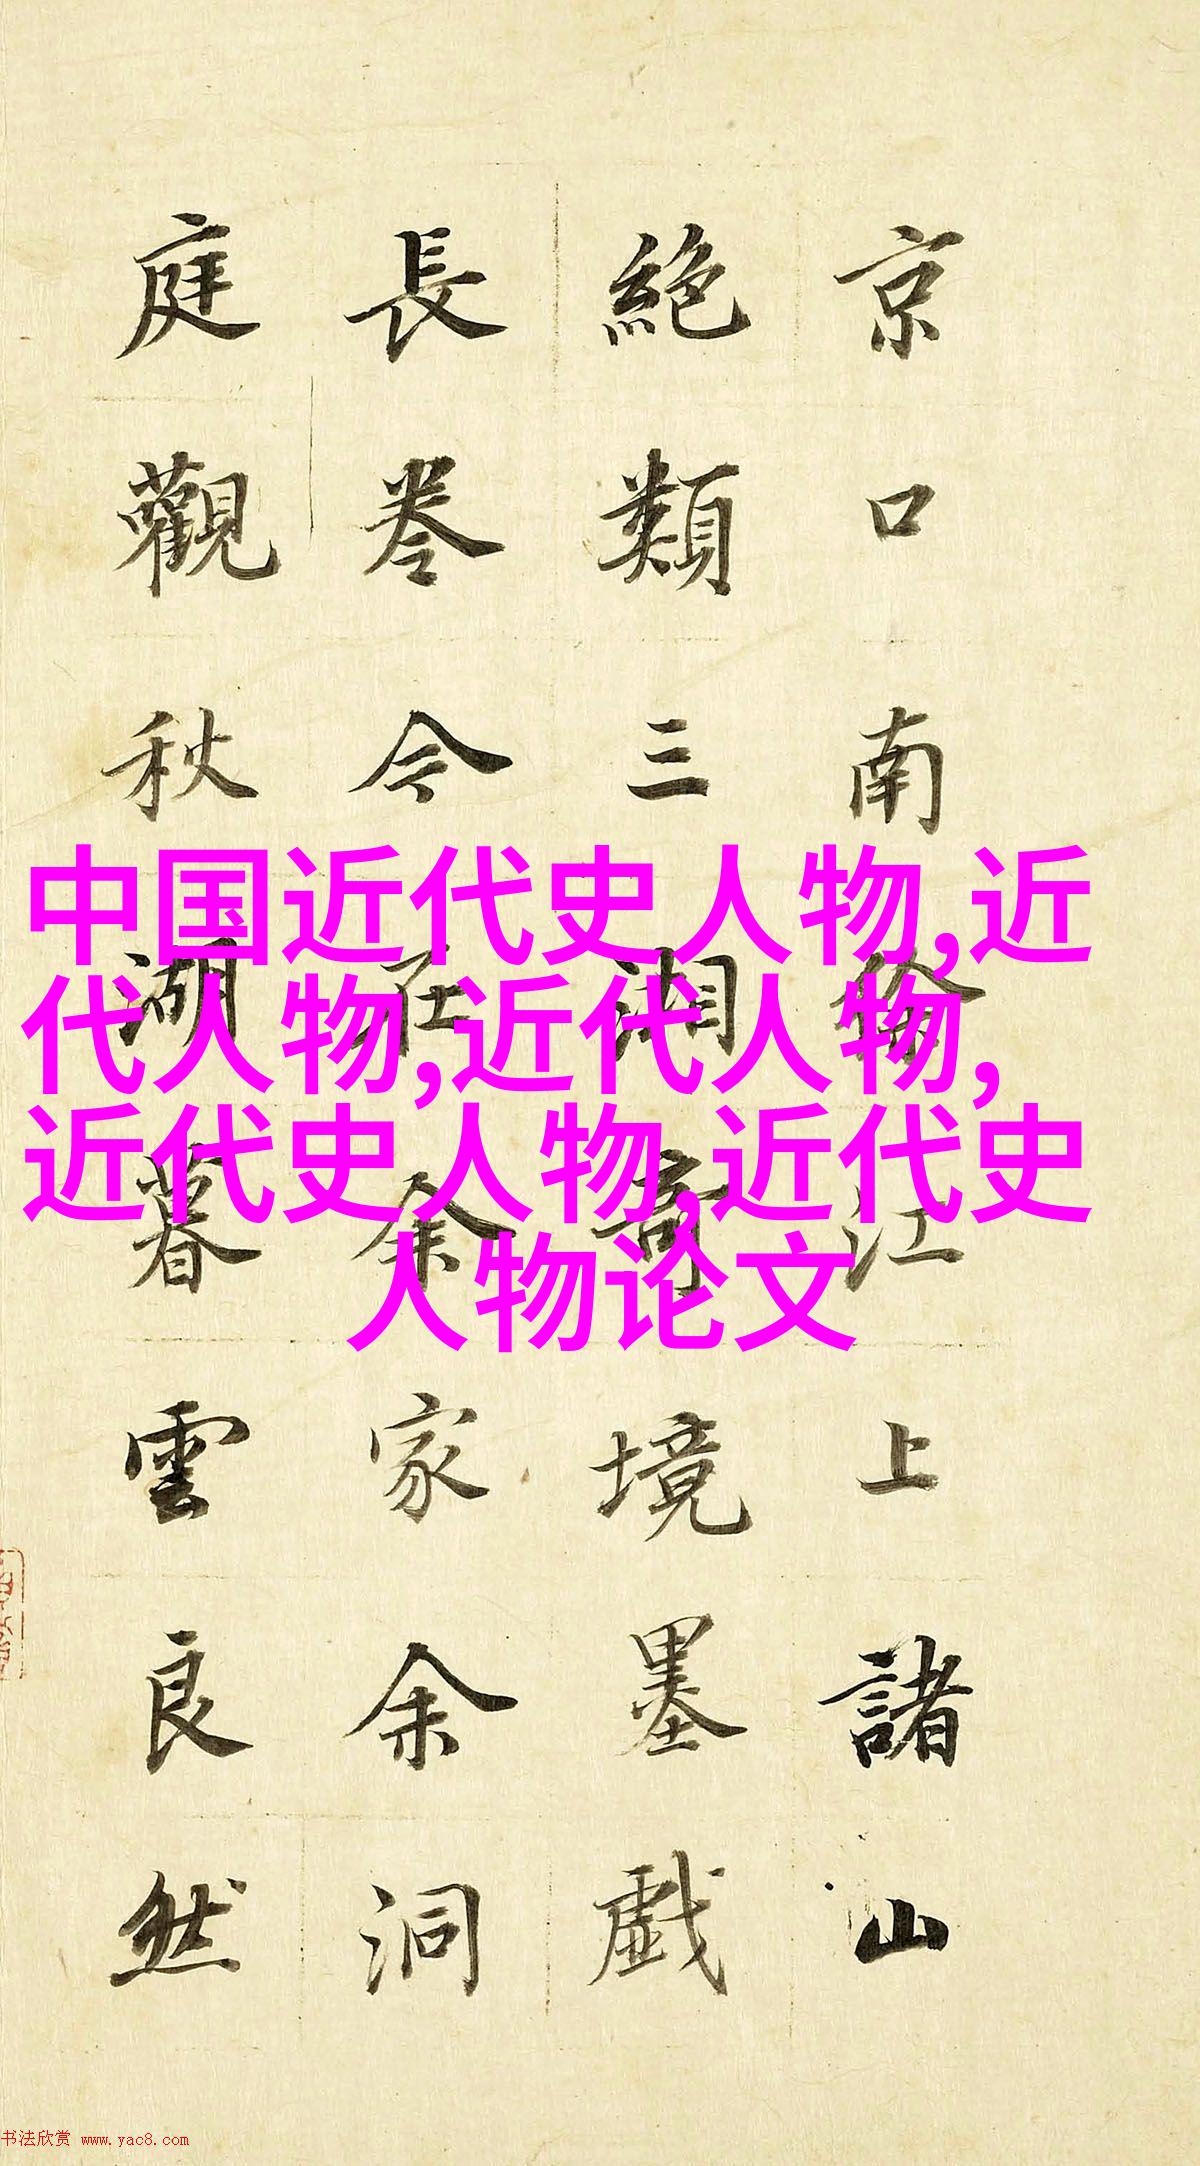 京口南徐江上諸山
絶類三湘奇境墨戲
長卷今在余家余洞
庭觀秋湖暮雲良然
中国近代史人物,近
代人物,近代人物,
近代史人物,近代史
人物论文
书法欣赏 www.yac8.com